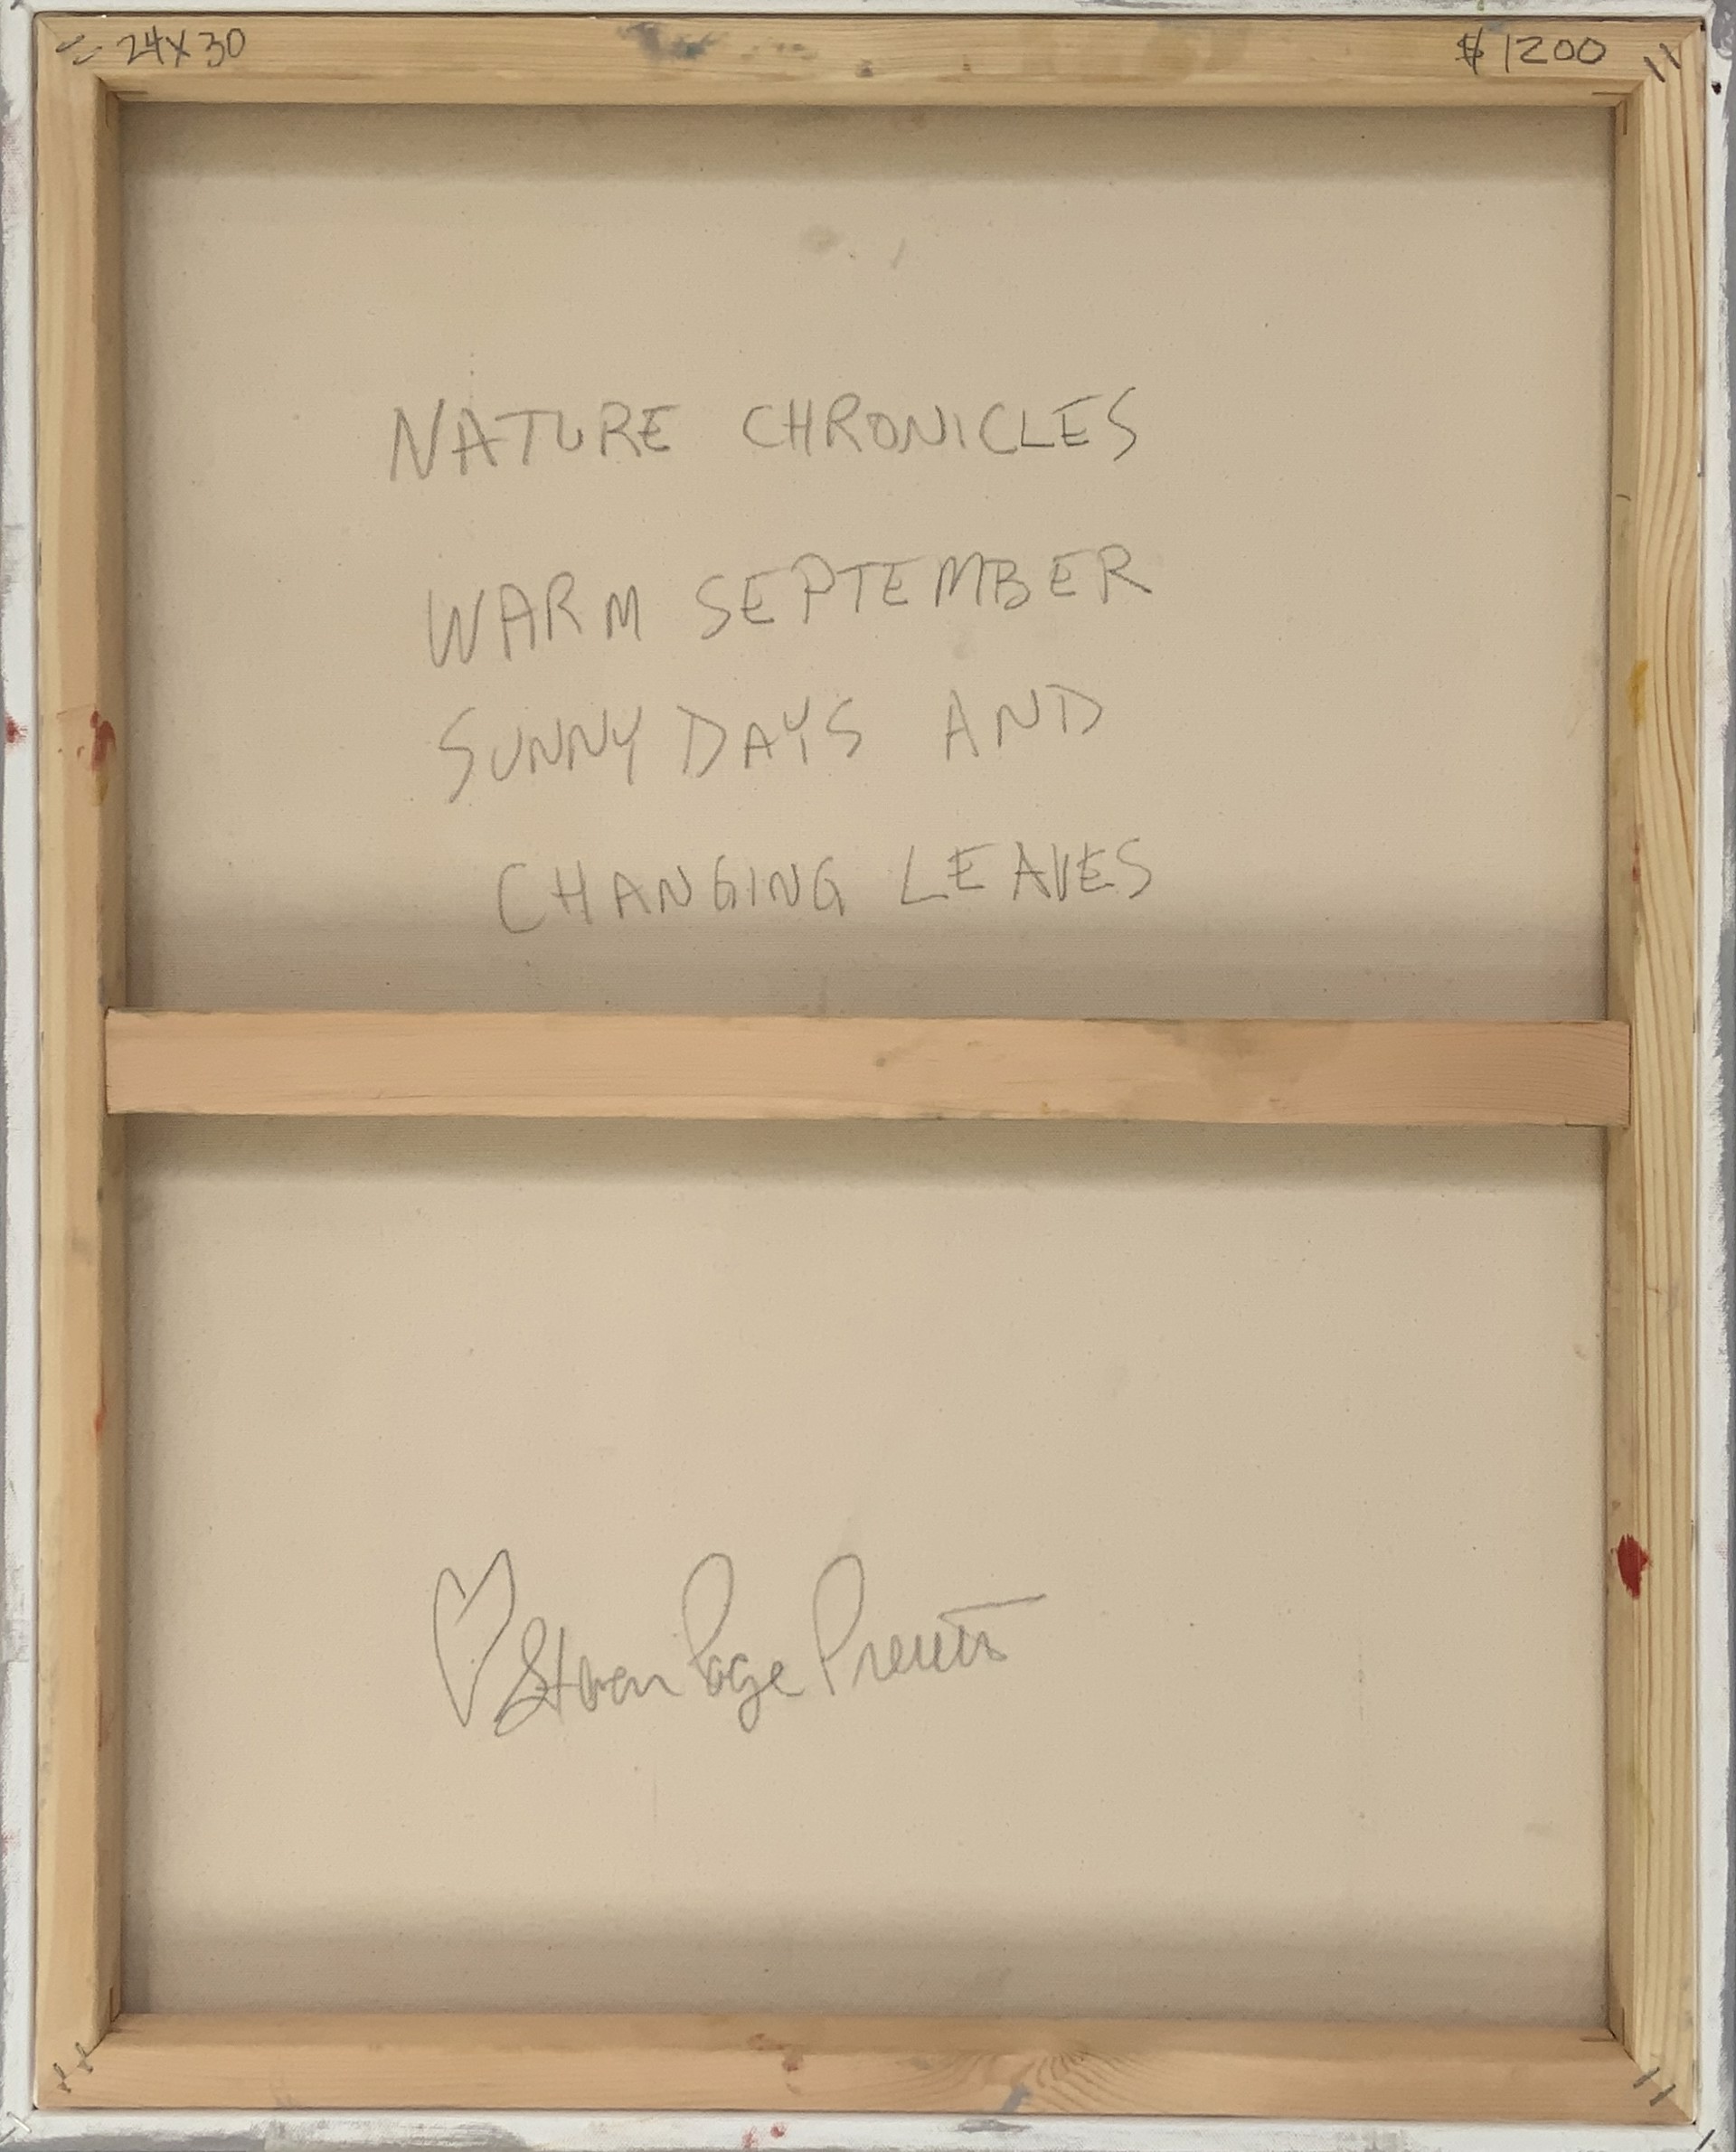 24X30
$1200
NATURE CHRONICLES
WARM SEPTEMBER
SUNNY DAYS AND
CHANGING LEAVES
Steven Page Prewitt